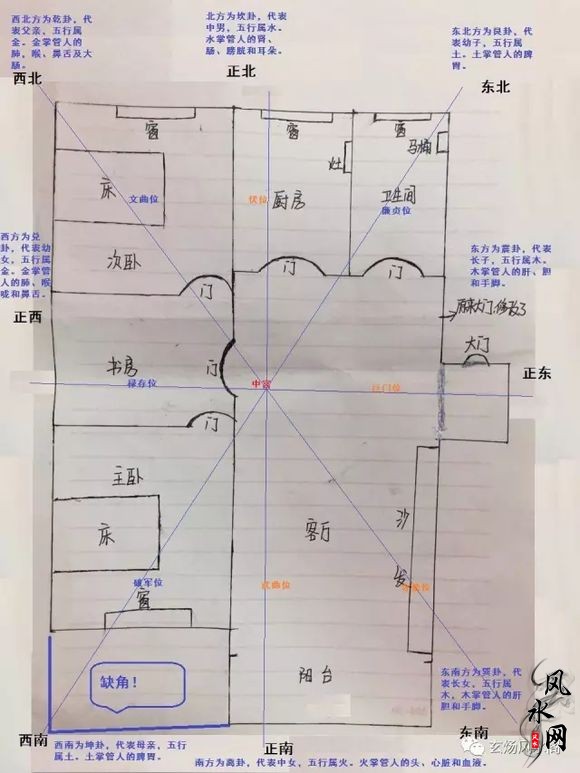 西北方为乾卦，代
表父亲，五行属
金。金掌管人的
肺、喉、鼻舌及大
肠。
西北
北方为坎卦，代表
中男，五行属水。
水掌管人的肾、
肠、膀胱和耳朵。
正北
东北方为艮卦，代
表幼子，五行属
土。土掌管人的脾
胃。
东北
窗
窗
窗
马桶
灶
床
文曲位
伏位
厨房
卫生间
廉贞位
次卧
西方为兑
卦，代表幼
女，五行属
金。金掌管
人的肺、喉
咙和鼻舌。
东方为震卦，代表
长子，五行属木。
木掌管人的肝、胆
和手脚。
门
门
门
原来大门，修改了
正西
大门
书房
门
正东
禄存位
中宫
巨门位
门
主卧
床
客厅
沙
发
破军位
武曲位
窗
缺角！
阳台
东南方为巽卦，代
表长女，五行属
木，木掌管人的肝
胆和手脚。
风水网
西南
西南为坤卦，代表母亲，五行
属土。土掌管人的脾胃。
正南
南方为离卦，代表中女，五行属火。火掌管人的头、心脏和血液。
东南